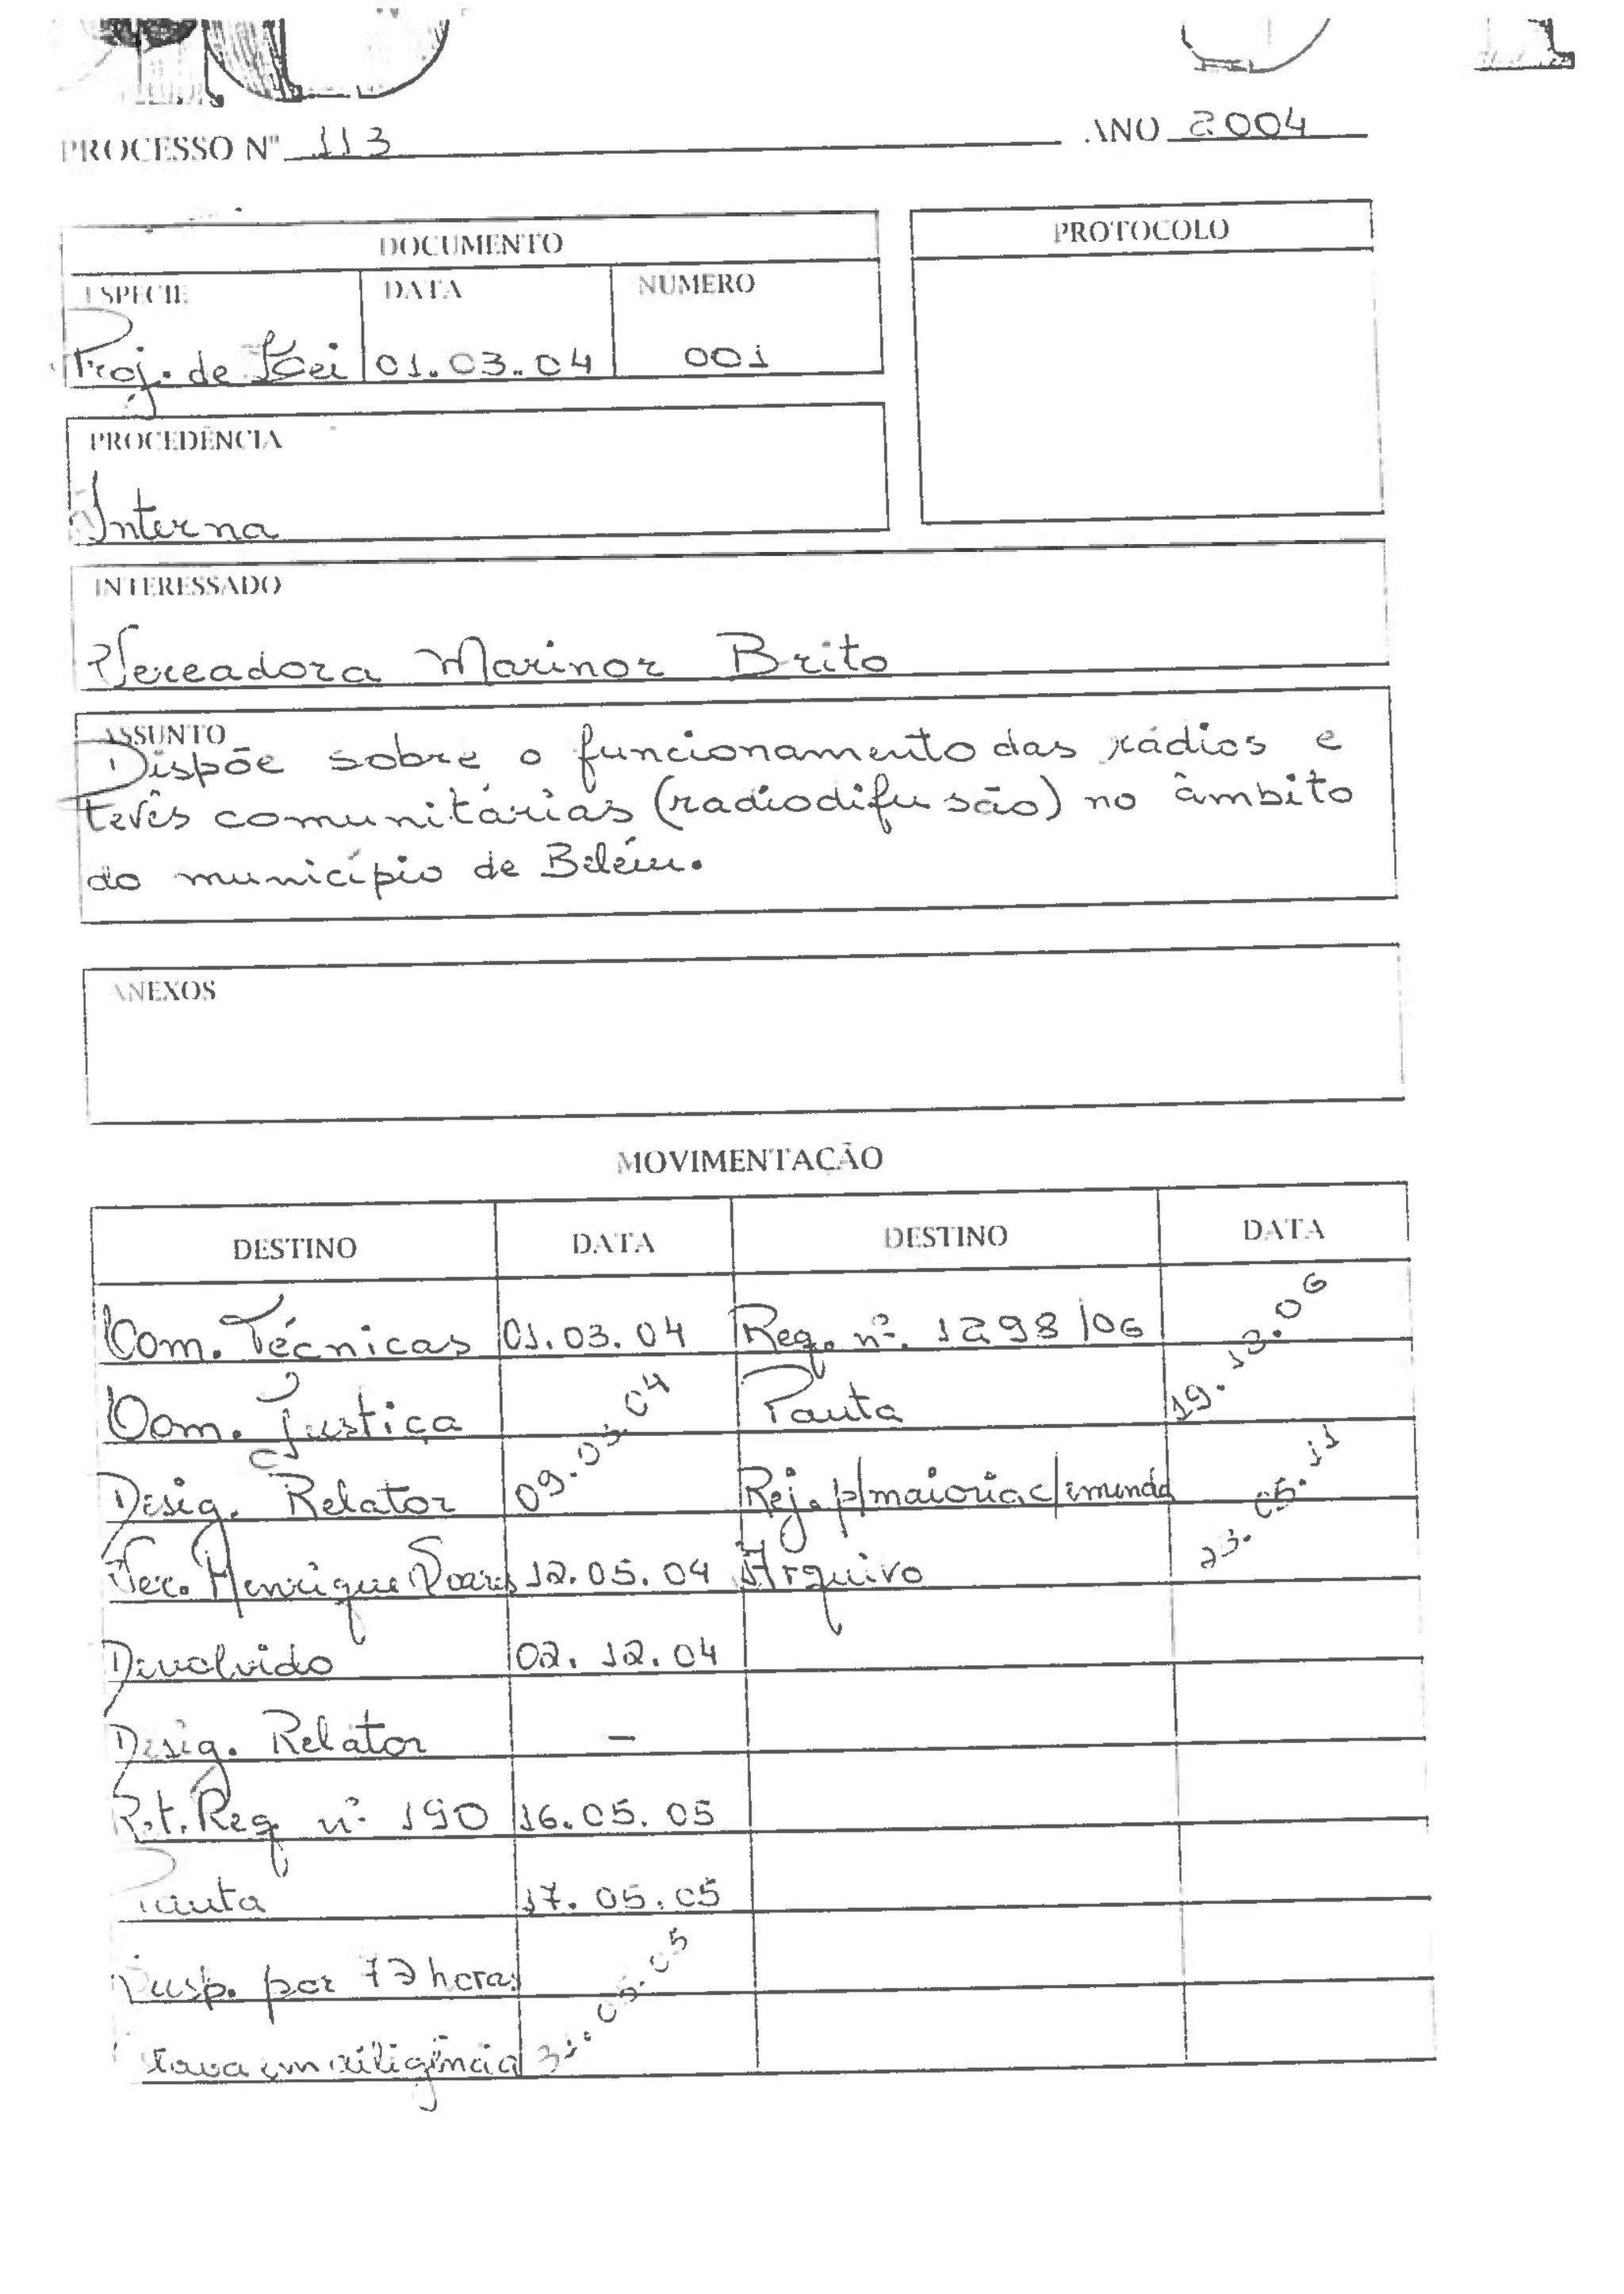 PROCESSO Nº 113 ANO 2004
DOCUMENTO
PROTOCOLO
ESPÉCIE DATA NÚMERO
Proj. de Lei 01.03.04 001
PROCEDÊNCIA
Interna
INTERESSADO
Vereadora Marinor Brito
ASSUNTO
Dispõe sobre o funcionamento das rádios e
tevês comunitárias (radiodifusão) no âmbito
do município de Belém.
ANEXOS
MOVIMENTAÇÃO
DESTINO DATA DESTINO DATA
Com. Técnicas 01.03.04 Req. nº. 1298/06
Com. Justiça Pauta 19.
Desig. Relator 09.03.04 Rej. p/maioria c/emenda
Ver. Henrique Soares 12.05.04 Arquivo 23.05.11
Devolvido 02.12.04
Desig. Relator –
Ret. Req nº 190 16.05.05
Pauta 17.05.05
Susp. por 72 horas
em diligência 31.05.05